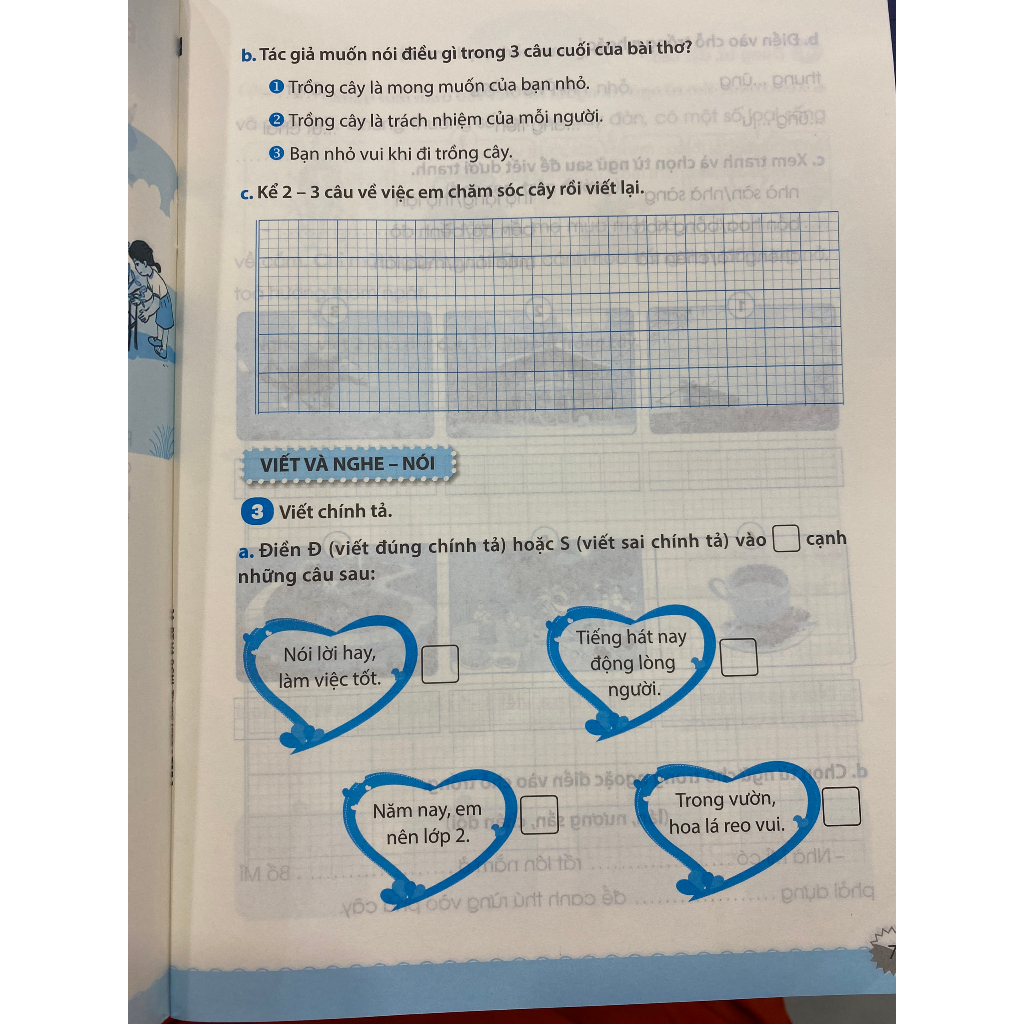 b. Tác giả muốn nói điều gì trong 3 câu cuối của bài thơ?
1 Trồng cây là mong muốn của bạn nhỏ.
2 Trồng cây là trách nhiệm của mỗi người.
3 Bạn nhỏ vui khi đi trồng cây.
c. Kể 2 – 3 câu về việc em chăm sóc cây rồi viết lại.
VIẾT VÀ NGHE – NÓI
3 Viết chính tả.
a. Điền Đ (viết đúng chính tả) hoặc S (viết sai chính tả) vào cạnh
những câu sau:
Nói lời hay,
làm việc tốt.
Tiếng hát nay
động lòng
người.
Năm nay, em
nên lớp 2.
Trong vườn,
hoa lá reo vui.
7